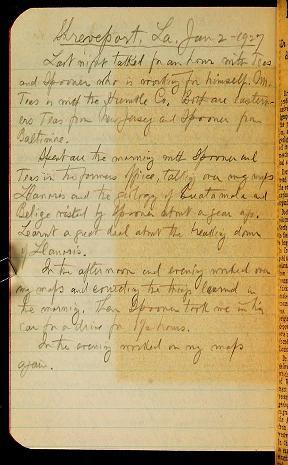 Shreveport, La, Jan 2-1927
Last night talked for an hour with Teas
and Spooner who is working for himself. Mr.
Teas is with the Humble Co. Both are Eastern-
ers Teas from New Jersey and Spooner from
Baltimore.
Spent all the morning with Spooner and
Teas in the formers office, talking over my maps
Llaneres and the geology of Guatamala and
Belize visited by Spooner about a year ago.
Learnt a great deal about the beating down
Llanoris.
In the afternoon and evening worked over
my maps and correcting the things learned in
the morning. Then Spooner took me in his
car for a drive for 1½ hours.
In the evening worked on my maps
again.